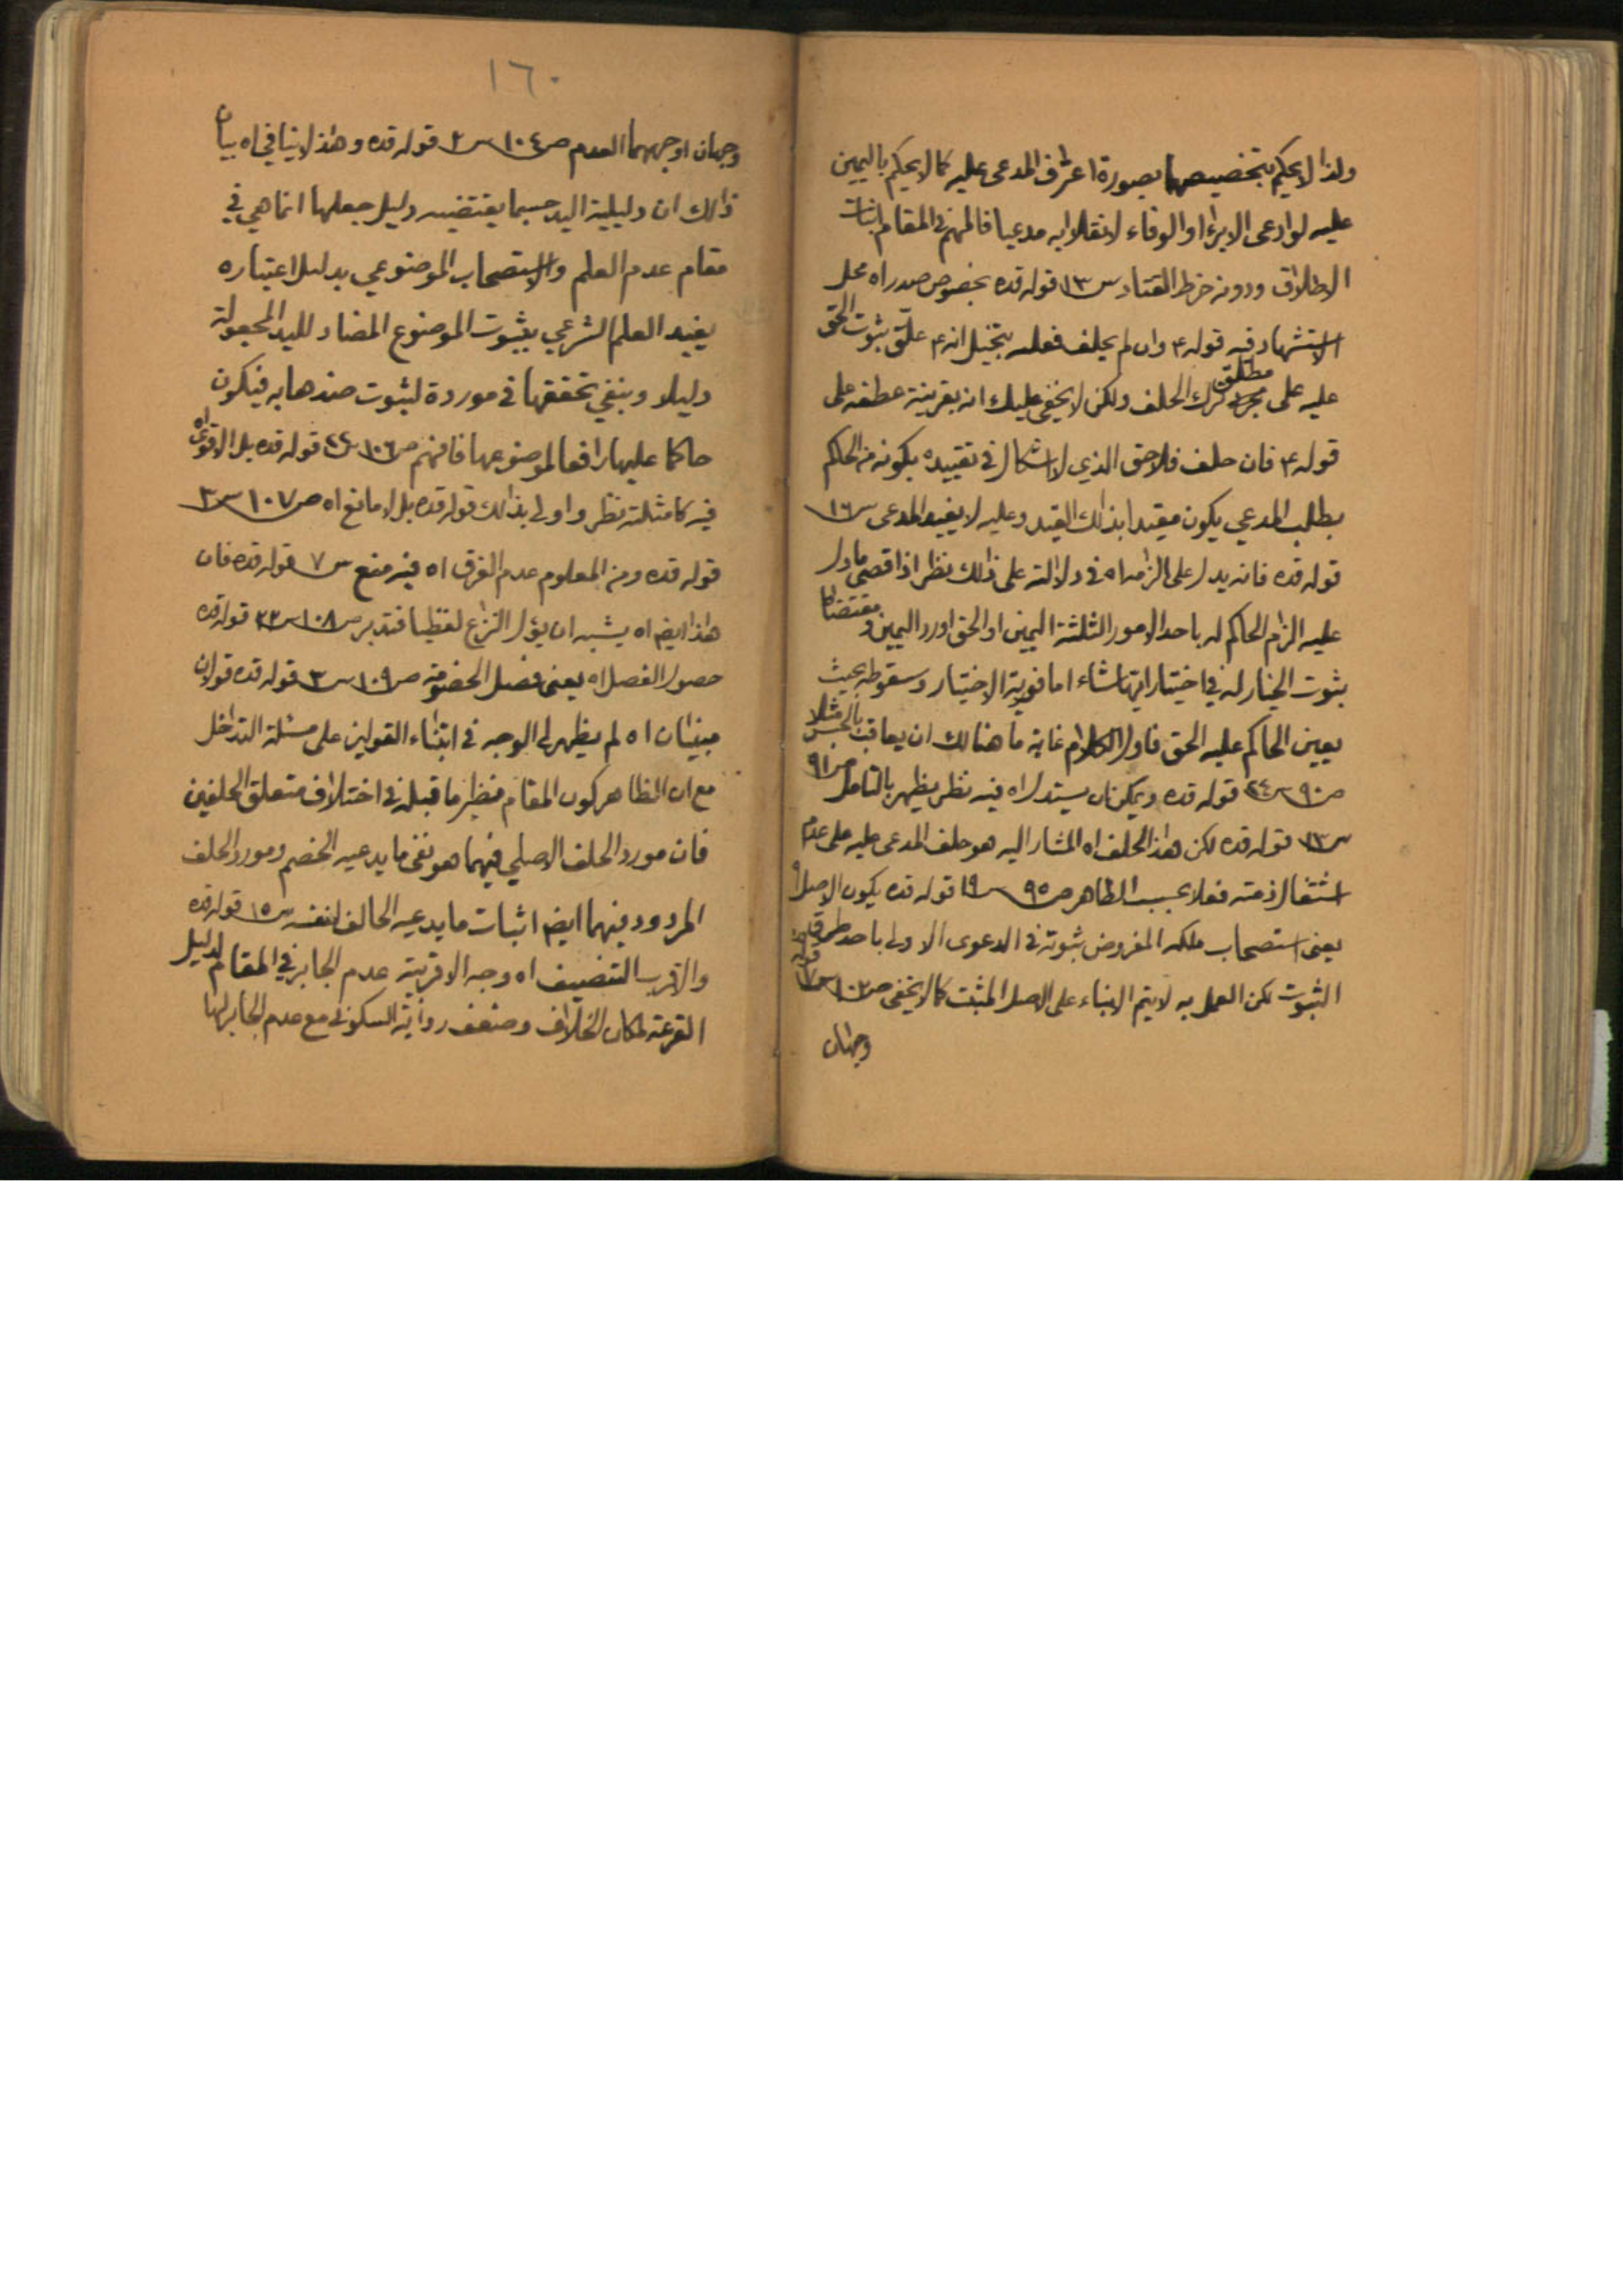 ولذا لا يحكم بتخصيصها بصورة اعتراف المدعى عليه كما لا يحكم باليمين
عليه لو ادعى الابراء او الوفاء لانقلابه مدعيا فالمهم في المقام اثبات
الاطلاق ودونه خرط القتاد س١٣ قوله قده بخصوص صدر اه محل
الاستشهاد فيه قوله ع وان لم يحلف فعليه بتخيل انه ع علق ثبوت الحق
عليه على مطلق ترك الحلف ولكن لا يخفى عليك انه بقرينة عطفه على
قوله ع فان حلف فلا حق الذي لا اشكال في تقييده بكونه من الحاكم
بطلب المدعي يكون مقيدا بذلك القيد وعليه لا يفيد المدعى س١٦
قوله قده فانه يدل على الزامه اه في دلالته على ذلك نظر اذ اقصى ما دل
عليه الزام الحاكم له باحد الامور الثلثة اليمين او الحق او رد اليمين و مقتضاها
ثبوت الخيار له في اختيار ايها شاء اما فورية الاختيار وسقوطه بحيث
يعين الحاكم عليه الحق فاول الكلام غاية ما هنالك ان يعاقب بالحبس مثلا
ص٩٠ س٢٤ قوله قده ويمكن ان يستدل اه فيه نظر يظهر بالتامل ص٩١
س١٣ قوله قده لكن هذا الحلف اه المشار اليه هو حلف المدعى عليه على عدم
اشتغال ذمته فعلا بحسب الظاهر ص٩٥ س١٩ قوله قده يكون الاصل اه
يعنى استصحاب ملكه المفروض ثبوته في الدعوى الاولى باحد طرق
الثبوت لكن العمل به لا يتم الا بناء على الاصل المثبت كما لا يخفى ص١٠٢ س٧ قوله قده
وجهان
١٦٠
وجهان اوجههما العدم ص١٠٤ س٢ قوله قده وهذا لا ينافي اه بيان
ذلك ان دليلية اليد حسبما يقتضيه دليل جعلها انما هي في
مقام عدم العلم والاستصحاب الموضوعي بدليل اعتباره
يفيد العلم الشرعي بثبوت الموضوع المضاد لليد المجعولة
دليلا وينفي تحققها في مورده لثبوت ضدها به فيكون
حاكما عليها رافعا لموضوعها فافهم ص١٠٦ قوله قده بل الاقوى اه
فيه كما مثلته نظر واولى بذلك قوله قده بل لا مانع اه ص١٠٧ س٣
قوله قده ومن المعلوم عدم الفرق اه فيه منع س٧ قوله قده فان
هذا ايضا اه يشبه ان يؤل النزاع لفظيا فتدبر ص١٠٨ س٢٢ قوله قده
حصول الفصل اه يعنى فصل الخصومة ص١٠٩ س٣ قوله قده قولان
مبنيان اه لم يظهر لي الوجه في ابتناء القولين على مسئلة التداخل
مع ان الظاهر كون المقام نظير ما قبله في اختلاف متعلق الحلفين
فان مورد الحلف الاصلي فيهما هو نفى ما يدعيه الخصم ومورد الحلف
المردود فيهما ايضا اثبات ما يدعيه الحالف لنفسه س١٥ قوله قده
والاقرب التنصيف اه وجه الاقربية عدم الجابر في المقام لدليل
القرعة لمكان الخلاف وضعف رواية السكوني مع عدم الجابر لها